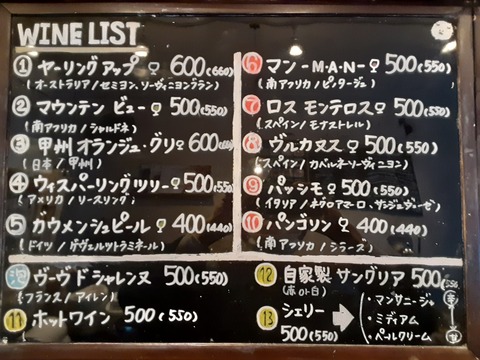 WINE LIST
① ヤーリング アップ 600(660)
(オーストラリア/セミヨン、ソーヴィニヨンブラン)
② マウンテン ビュー 500(550)
(南アフリカ/シャルドネ)
③ 甲州 オランジュ・グリ 600(660)
(日本/甲州)
④ ウィスパーリングツリー 500(550)
(アメリカ/リースリング)
⑤ ガウメンシュピール 400(440)
(ドイツ/ゲヴェルツトラミネール)
⑥ マン -M・A・N- 500(550)
(南アフリカ/ピノタージュ)
⑦ ロス モンテロス 500(550)
(スペイン/モナストレル)
⑧ ヴルカヌス 500(550)
(スペイン/カベルネソーヴィニヨン)
⑨ パッシモ 500(550)
(イタリア/ネグロアマーロ、サンジョヴェーゼ)
⑩ パンゴリン 400(440)
(南アフリカ/シラーズ)
泡 ヴーヴ ド シャレンヌ 500(550)
(フランス/アイレン)
⑪ ホットワイン 500(550)
⑫ 自家製 サングリア 500(550)
(赤or白)
⑬ シェリー
500(550)
・マンサニージャ
・ミディアム
・ペールクリーム
辛
甘